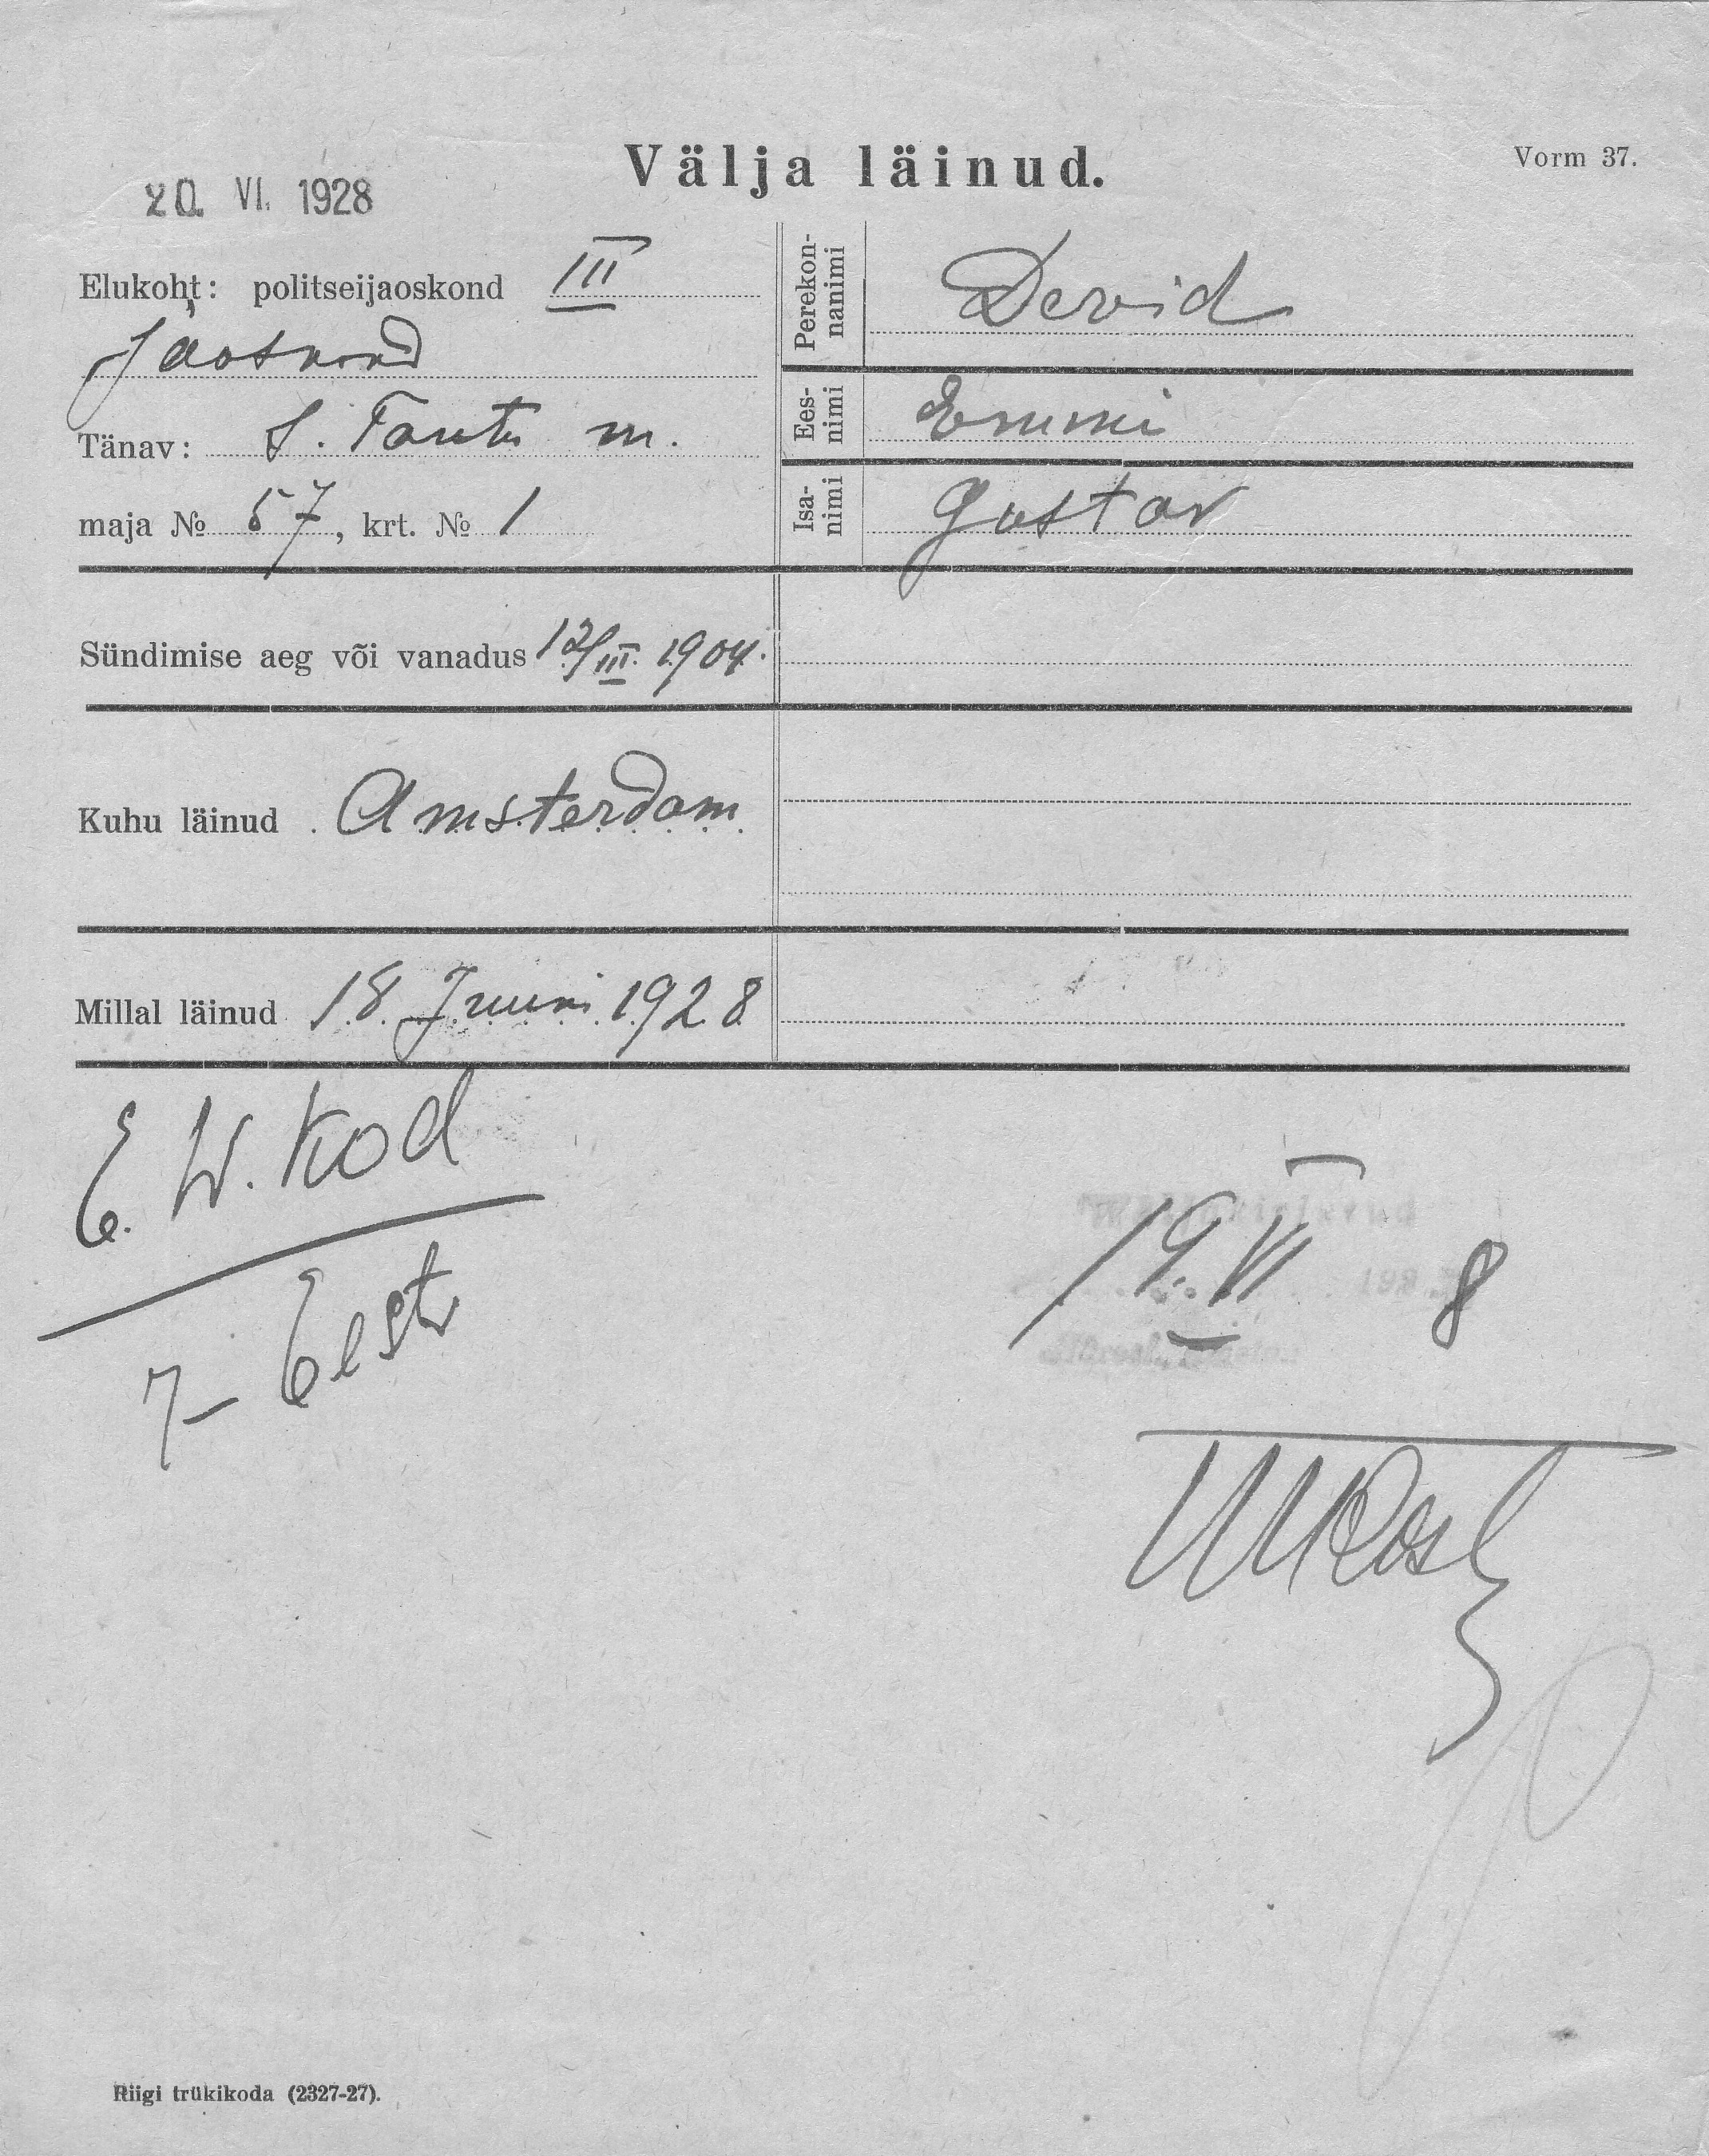 Välja läinud.
Vorm 37.
20. VI. 1928
Elukoht: politseijaoskond III
Jaoskond
Tänav: S. Tartu m.
maja № 57, krt. № 1
Perekonnanimi Devid
Eesnimi Emmi
Isanimi Gustav
Sündimise aeg või vanadus 12/III. 1904.
Kuhu läinud Amsterdam
Millal läinud 18. Juuni 1928
E. W. Kod
7- Eest
19. VI 8
Riigi trükikoda (2327-27).